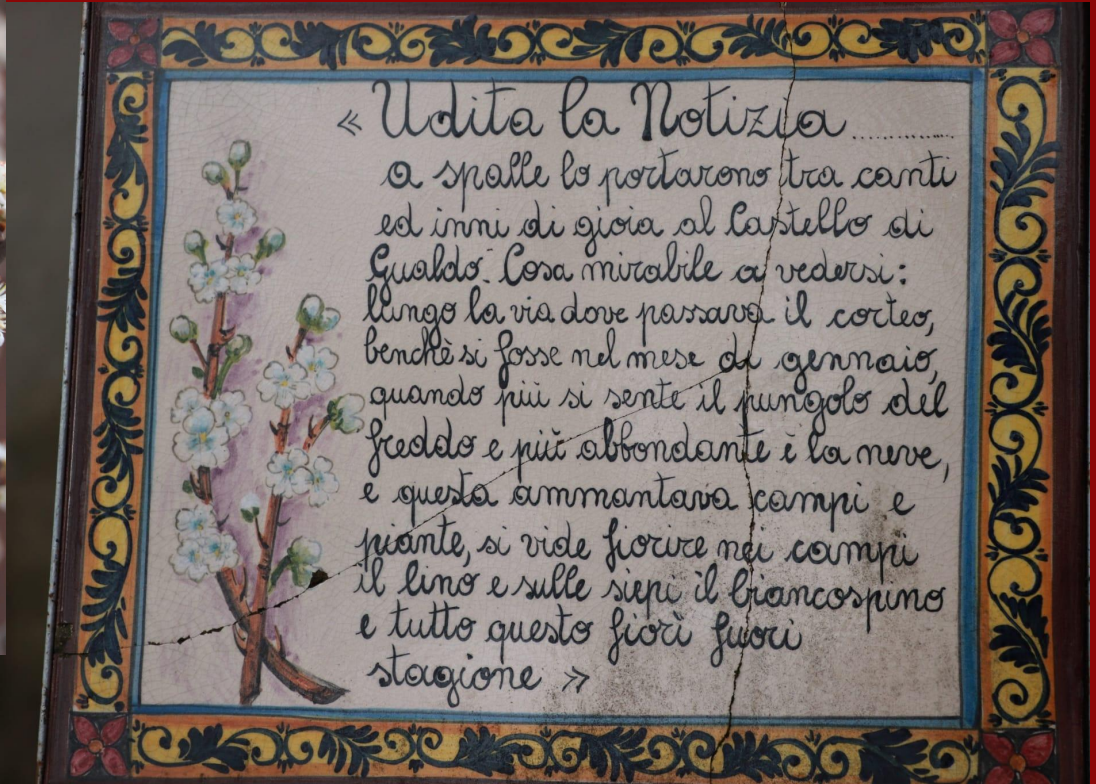 « Udita la Notizia ..............
a spalle lo portarono tra canti
ed inni di gioia al Castello di
Gualdo. Cosa mirabile a vedersi:
lungo la via dove passava il corteo,
benchè si fosse nel mese di gennaio,
quando più si sente il pungolo del
freddo e più abbondante è la neve,
e questa ammantava campi e
piante, si vide fiorire nei campi
il lino e sulle siepi il biancospino
e tutto questo fiorì fuori
stagione »